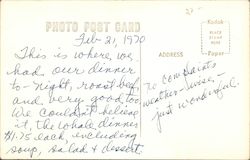 28
PHOTO POST CARD
Kodak
Paper
Feb 21, 1970
ADDRESS
This is where we
had our dinner
to-night, roast beef,
and very good too
We couldn't believe
it, the whole dinner
$1.75 each, including
soup, salad & dessert.
no complaints
weather-wise -
just wonderful.